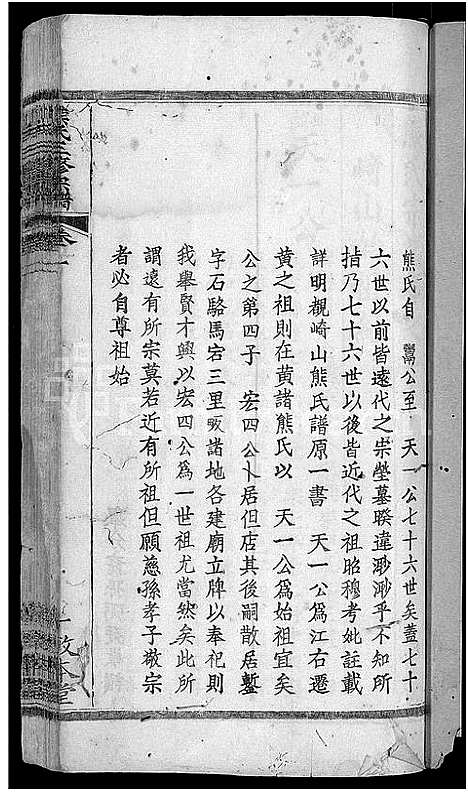 熊氏自 鬻公至 天一公七十六世矣蓋七十
六世以前皆遠代之崇塋墓暌違渺渺乎不知所
指乃七十六世以後皆近代之祖昭穆考妣註載
詳明觀崎山熊氏譜原一書 天一公為江右遷
黄之祖則在黄諸熊氏以 天一公為始祖宜矣
公之第四子 宏四公卜居但店其後嗣散居鏨
字石駱馬宕三里畈諸地各建廟立牌以奉祀則
我舉賢才興以宏四公為一世祖尤當然矣此所
謂遠有所宗莫若近有所祖但願慈孫孝子敬宗
者必自尊祖始
熊氏 修宗譜 卷一
敦本堂